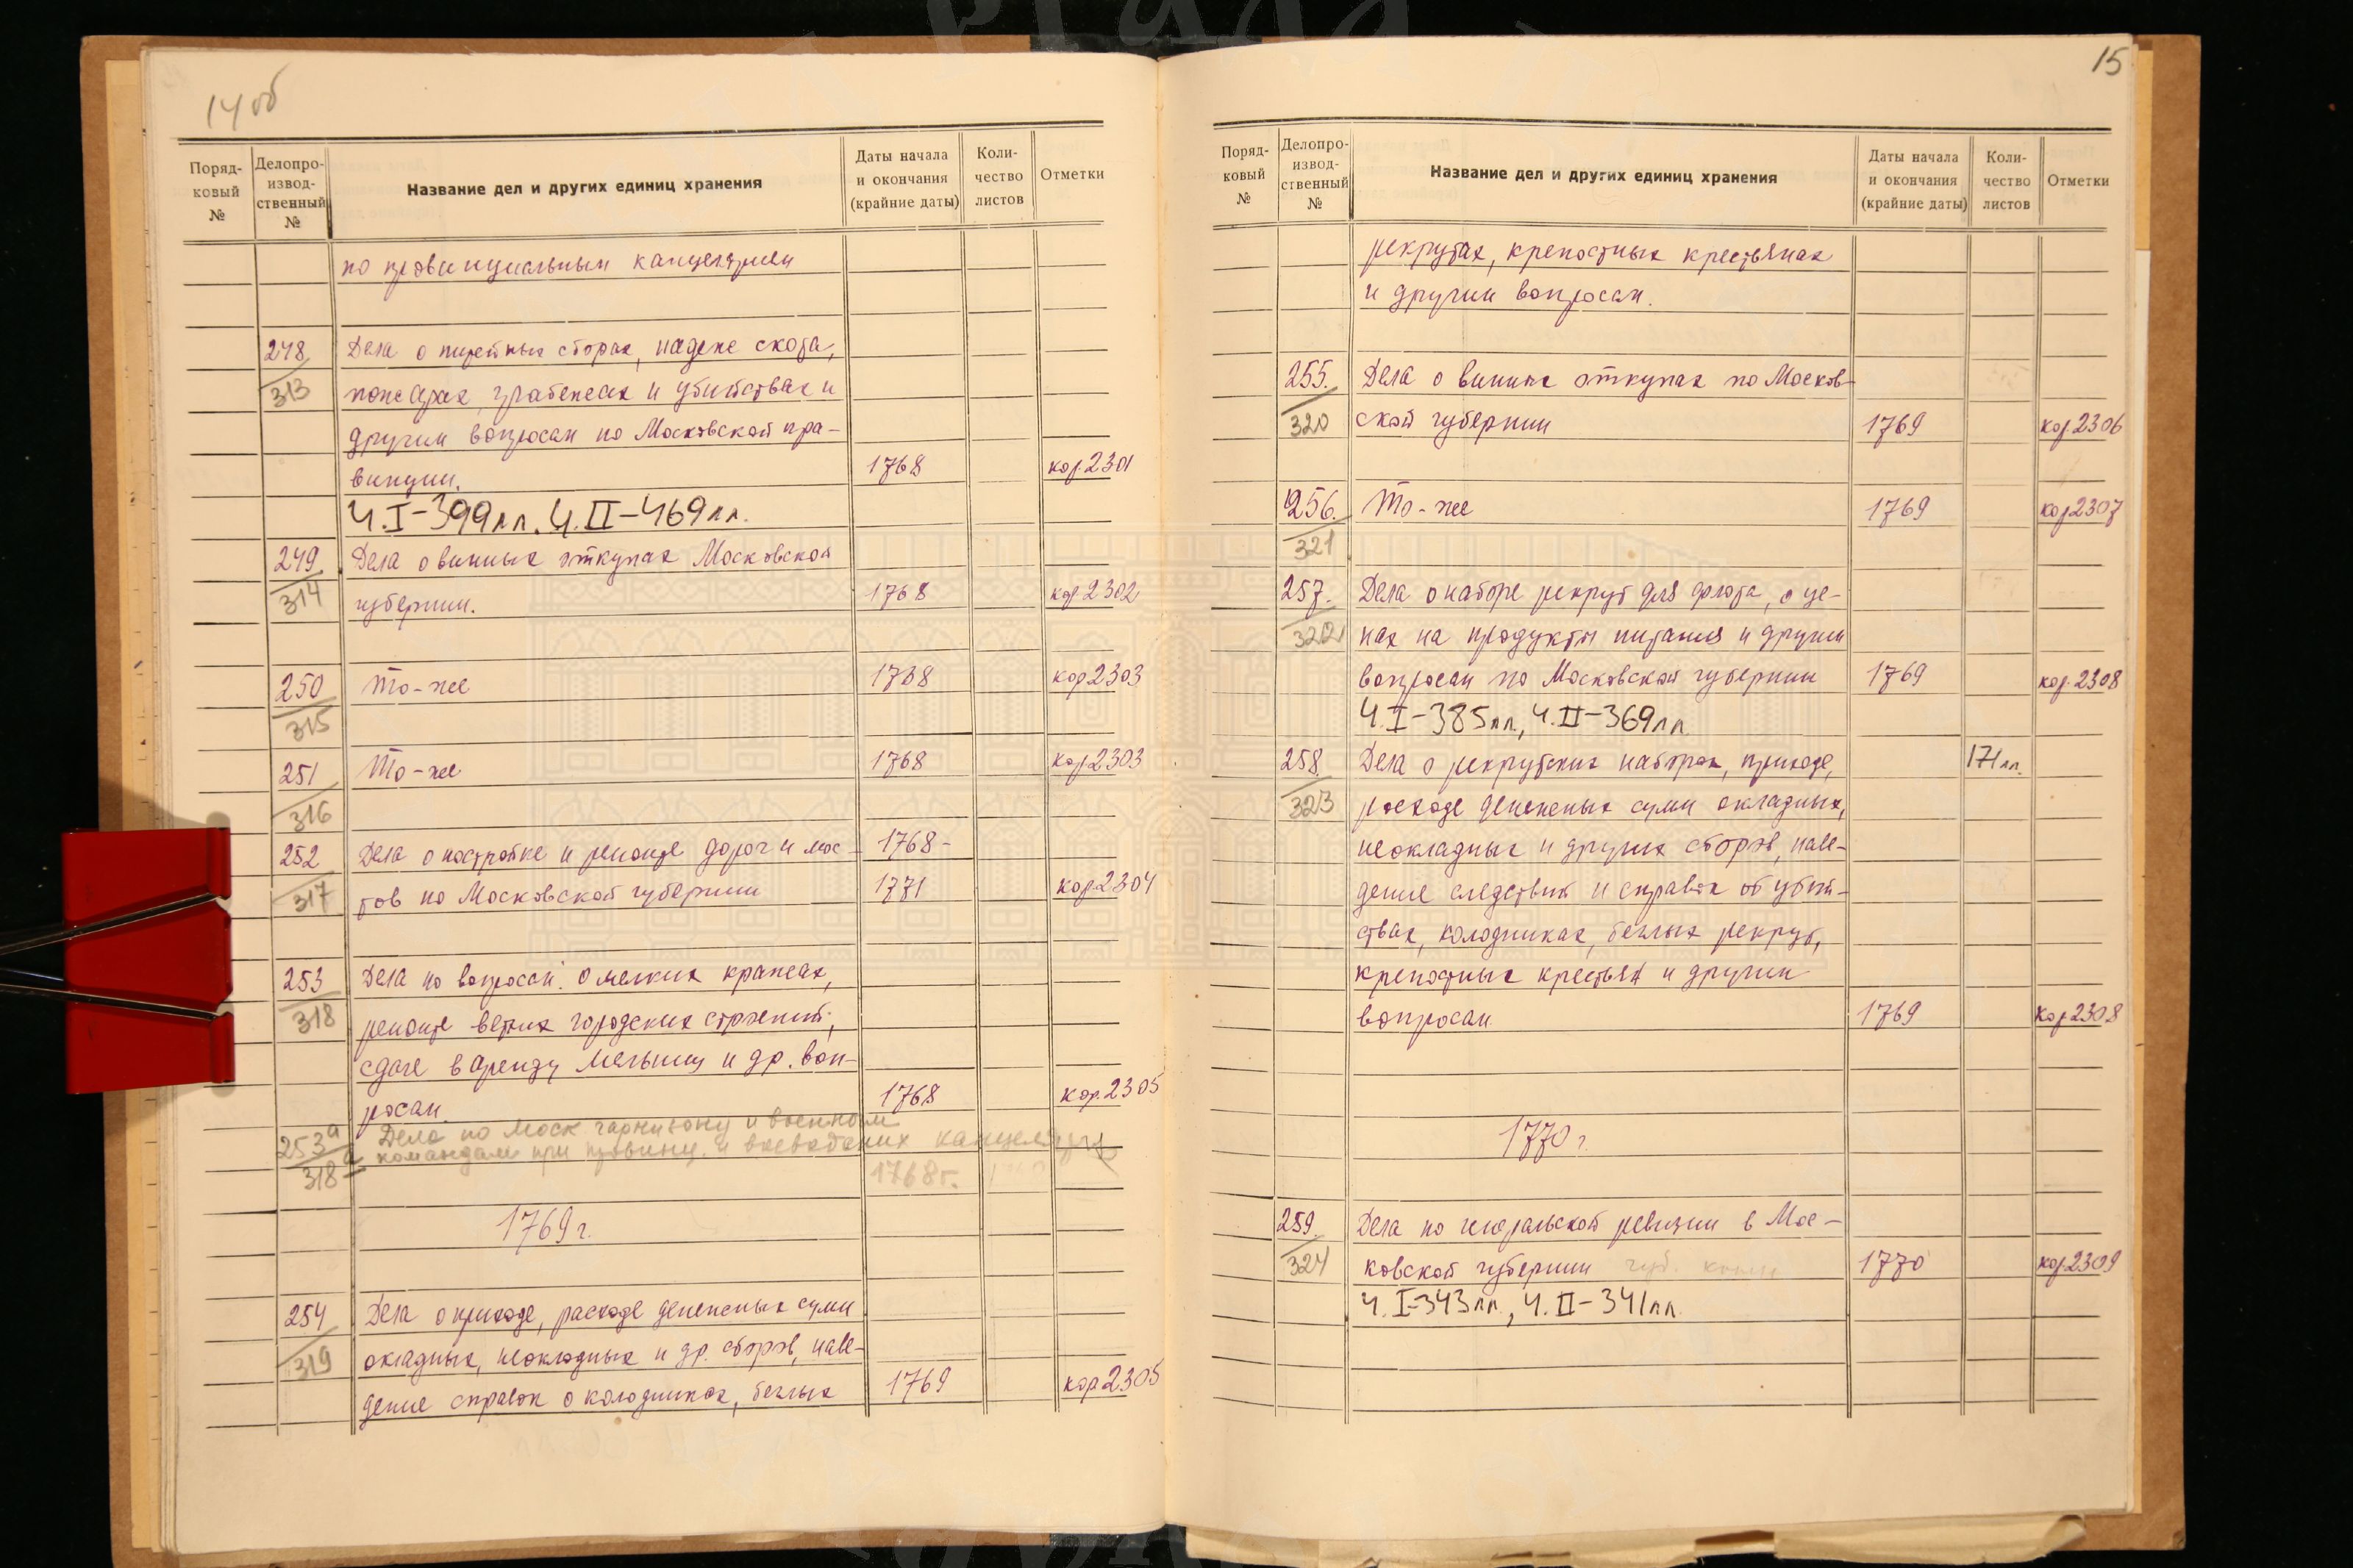 14 об
Поряд-
ковый
№
Делопро-
извод-
ственный
№
Название дел и других единиц хранения
Даты начала
и окончания
(крайние даты)
Коли-
чество
листов
Отметки
по провинциальным канцеляриям
248 Дела о питейных сборах, падеже скота,
313 пожарах, грабежах и убийствах и
другим вопросам по Московской про-
винции. 1768 кор. 2301
Ч. I – 399 лл. Ч. II – 469 лл.
249. Дела о винных откупах Московской
314 губернии. 1768 кор 2302
250 То-же 1768 кор 2303
315
251 То-же 1768 кор 2303
316
252 Дела о постройке и ремонте дорог и мос- 1768-
317 тов по Московской губернии 1771 кор. 2304
253 Дела по вопросам: о мелких кражах,
318 ремонте ветхих городских строений,
сдаче в аренду мельниц и др. воп-
росам 1768 кор. 2305
253а Дела по Моск. гарнизону и военным
318а командам при провинц. и воеводских канцеляриях
1768 г.
1769 г.
254 Дела о приходе, расходе денежных сумм
319 окладных, неокладных и др. сборов, наве-
дение справок о колодниках, беглых 1769 кор 2305
15
Поряд-
ковый
№
Делопро-
извод-
ственный
№
Название дел и других единиц хранения
Даты начала
и окончания
(крайние даты)
Коли-
чество
листов
Отметки
рекрутах, крепостных крестьянах
и другим вопросам.
255. Дела о винных откупах по Москов-
320 ской губернии 1769 кор. 2306
256. То-же 1769 кор 2307
321
257. Дела о наборе рекрут для флота, о це-
322 нах на продукты питания и другим
вопросам по Московской губернии 1769 кор. 2308
Ч. I – 385 лл., Ч. II – 369 лл.
258 Дела о рекрутских наборах, приходе, 171 лл.
323 расходе денежных сумм окладных,
неокладных и других сборов, наве-
дение следствий и справок об убий-
ствах, колодниках, беглых рекрут,
крепостных крестьян и другим
вопросам 1769 кор 2308
1770 г.
259. Дела по генеральской ревизии в Мос-
324 ковской губернии губ. 1770 кор. 2309
Ч. I – 343 лл., Ч. II – 341 лл.